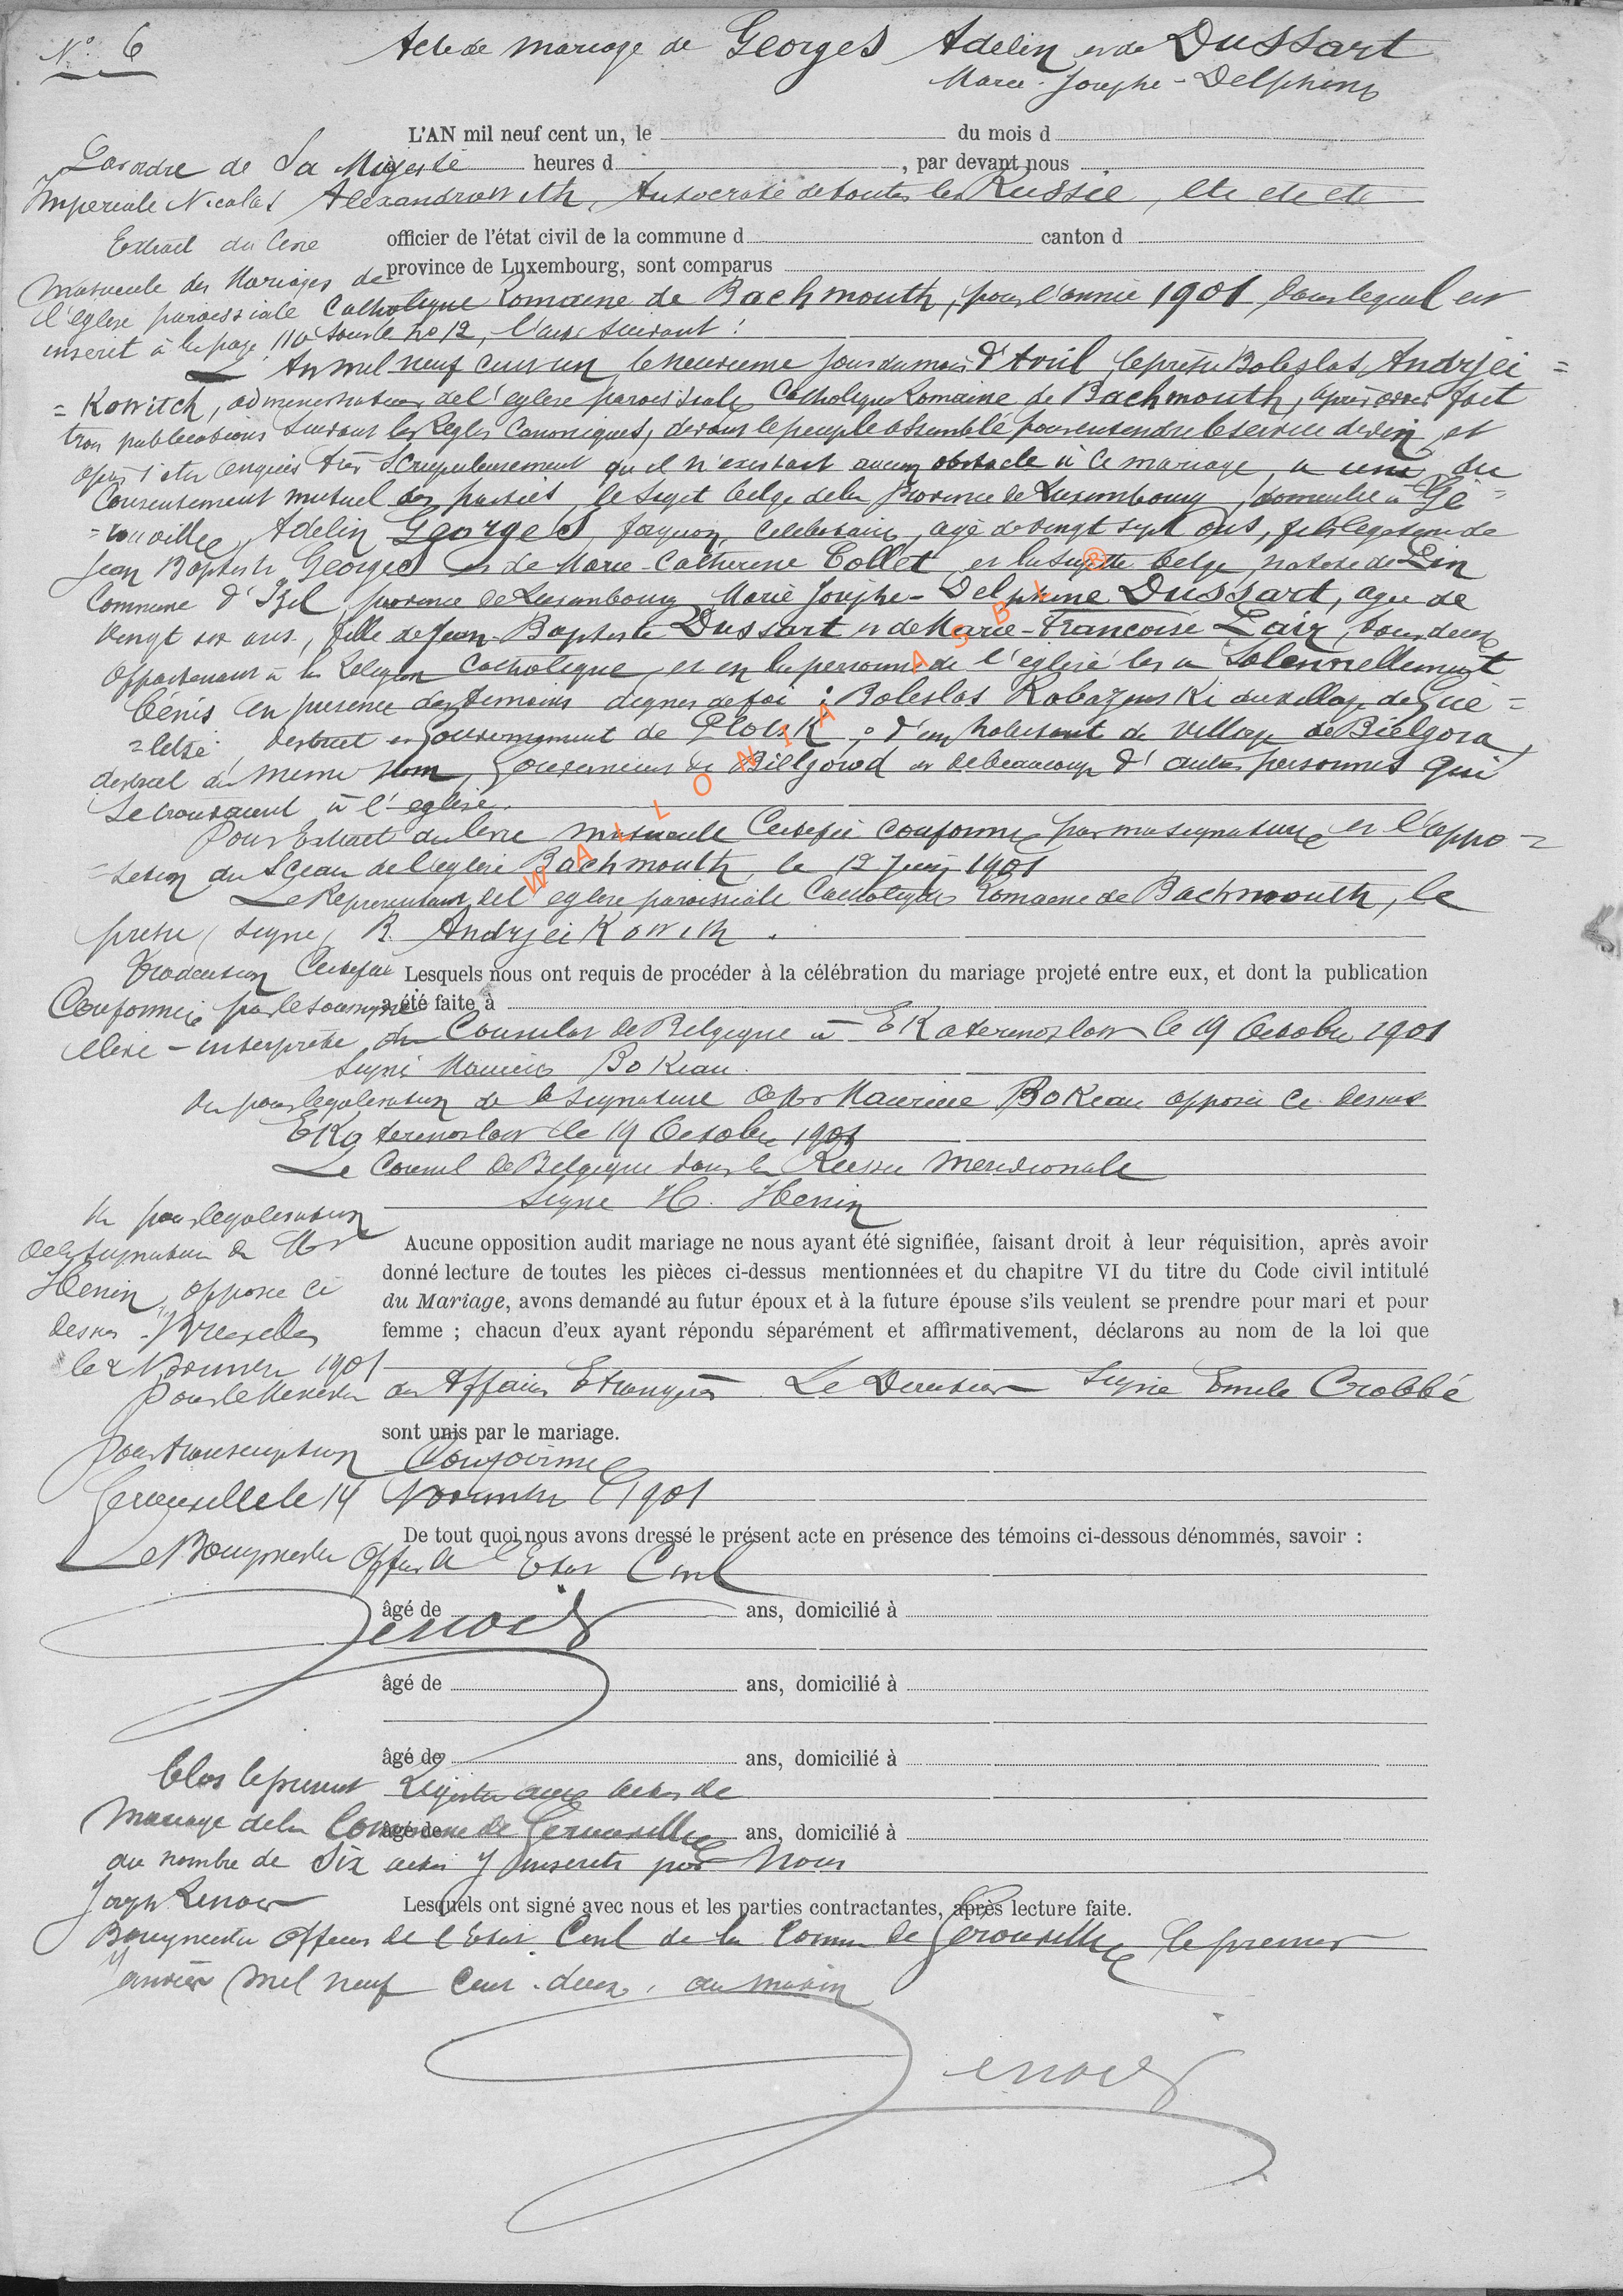 N° 6
Acte de mariage de Georges Adelin et de Dussart
Marie-Josephe-Delphine
L'AN mil neuf cent un, le du mois d
Par ordre de Sa Majesté heures d , par devant nous
Imperiale Nicolas Alexandrowith, Autocrate de toutes les Russie, etc etc etc
Extrait du livre officier de l'état civil de la commune d canton d
province de Luxembourg, sont comparus
matricule des Mariages de
l'eglise paroissiale Catholique Romaine de Bachmouth, pour l'année 1901, dans lequel est
inscrit à la page 110 sous le no 12, l'acte suivant :
L'An mil neuf cent un, le neuvieme jour du mois d'Avril le prêtre Boleslas Andrjei=
=Kowitch, administrateur de l'eglise paroissiale Catholique Romaine de Bachmouth, après avoir fait
trois publications suivant les Regles Canoniques, devant le peuple assemblé pour entendre le service divin et
après s'etre enquis très Scrupuleusement qu'il n'existait aucun obstacle à ce mariage, a uni du
Consentement mutuel des parties, le sujet belge de la province de Luxembourg, domicilié à Gé=
=rouville, Adelin Georges, célibataire, agé de vingt sept ans, fils légitime de
Jean Baptiste Georges et de Marie-Catherine Collet et la sujette belge, native de Pin
Commune d'Izel, province de Luxembourg Marie Josephe-Delphine Dussart, agée de
vingt six ans, fille de Jean-Baptiste Dussart et de Marie-Francoise Lair, tous deux
appartenant à la Religion Catholique, et en la personne de l'eglise les a Solennellement
bénis en presence des temoins dignes de foi : Boleslas Robazewski du village de Gue=
=letse, district et Gouvernement de Plotsk, d'un habitant de village de Bielgora,
district du meme nom, Gouvernement de Bielgorod et de beaucoup d'autres personnes qui
se trouvaient à l'eglise.
Pour Extrait du livre matricule Certifié conforme par ma signature et l'appo=
=sition du Sceau de l'eglise Bachmouth, le 12 Juin 1901
Le Representant de l'eglise paroissiale Catholique Romaine de Bachmouth, le
pretre (signé) B. Andrjeikowith.
Traduction Certifiée Lesquels nous ont requis de procéder à la célébration du mariage projeté entre eux, et dont la publication
Conforme par le soussigné a été faite à
élève-interprète du Consulat de Belgique à Ekaterinoslaw le 19 Octobre 1901
Signé Maurice Bokeau
Vu pour légalisation de la signature de Mr Maurice Bokeau apposée ci dessus
Ekaterinoslaw le 19 Octobre 1901
Le Consul de Belgique dans la Russie Meridionale
Signé H. Henin
Vu pour légalisation
de la signature de Mr Aucune opposition audit mariage ne nous ayant été signifiée, faisant droit à leur réquisition, après avoir
Henin, apposée ci donné lecture de toutes les pièces ci-dessus mentionnées et du chapitre VI du titre du Code civil intitulé
dessus. Bruxelles du Mariage, avons demandé au futur époux et à la future épouse s'ils veulent se prendre pour mari et pour
femme ; chacun d'eux ayant répondu séparément et affirmativement, déclarons au nom de la loi que
le 2 Novembre 1901
Pour le Ministre des Affaires Etrangères Le Directeur Signé Emile Crobbé
sont unis par le mariage.
Pour transcription Conforme
Gerouville le 14 Novembre 1901
De tout quoi nous avons dressé le présent acte en présence des témoins ci-dessous dénommés, savoir :
Le Bourgmestre Offic de l'Etat Civil
âgé de ans, domicilié à
âgé de ans, domicilié à
âgé de ans, domicilié à
Clos le présent Registre aux actes de
Mariage de la Commune de Gerouville
âgé de ans, domicilié à
au nombre de Six actes y inscrits par Nous
Joseph Lenoir Lesquels ont signé avec nous et les parties contractantes, après lecture faite.
Bourgmestre Officier de l'Etat Civil de la Commune de Gerouville, le premier
Janvier mil neuf cent deux, au matin
Lenoir
WALLONIA ASBL ®